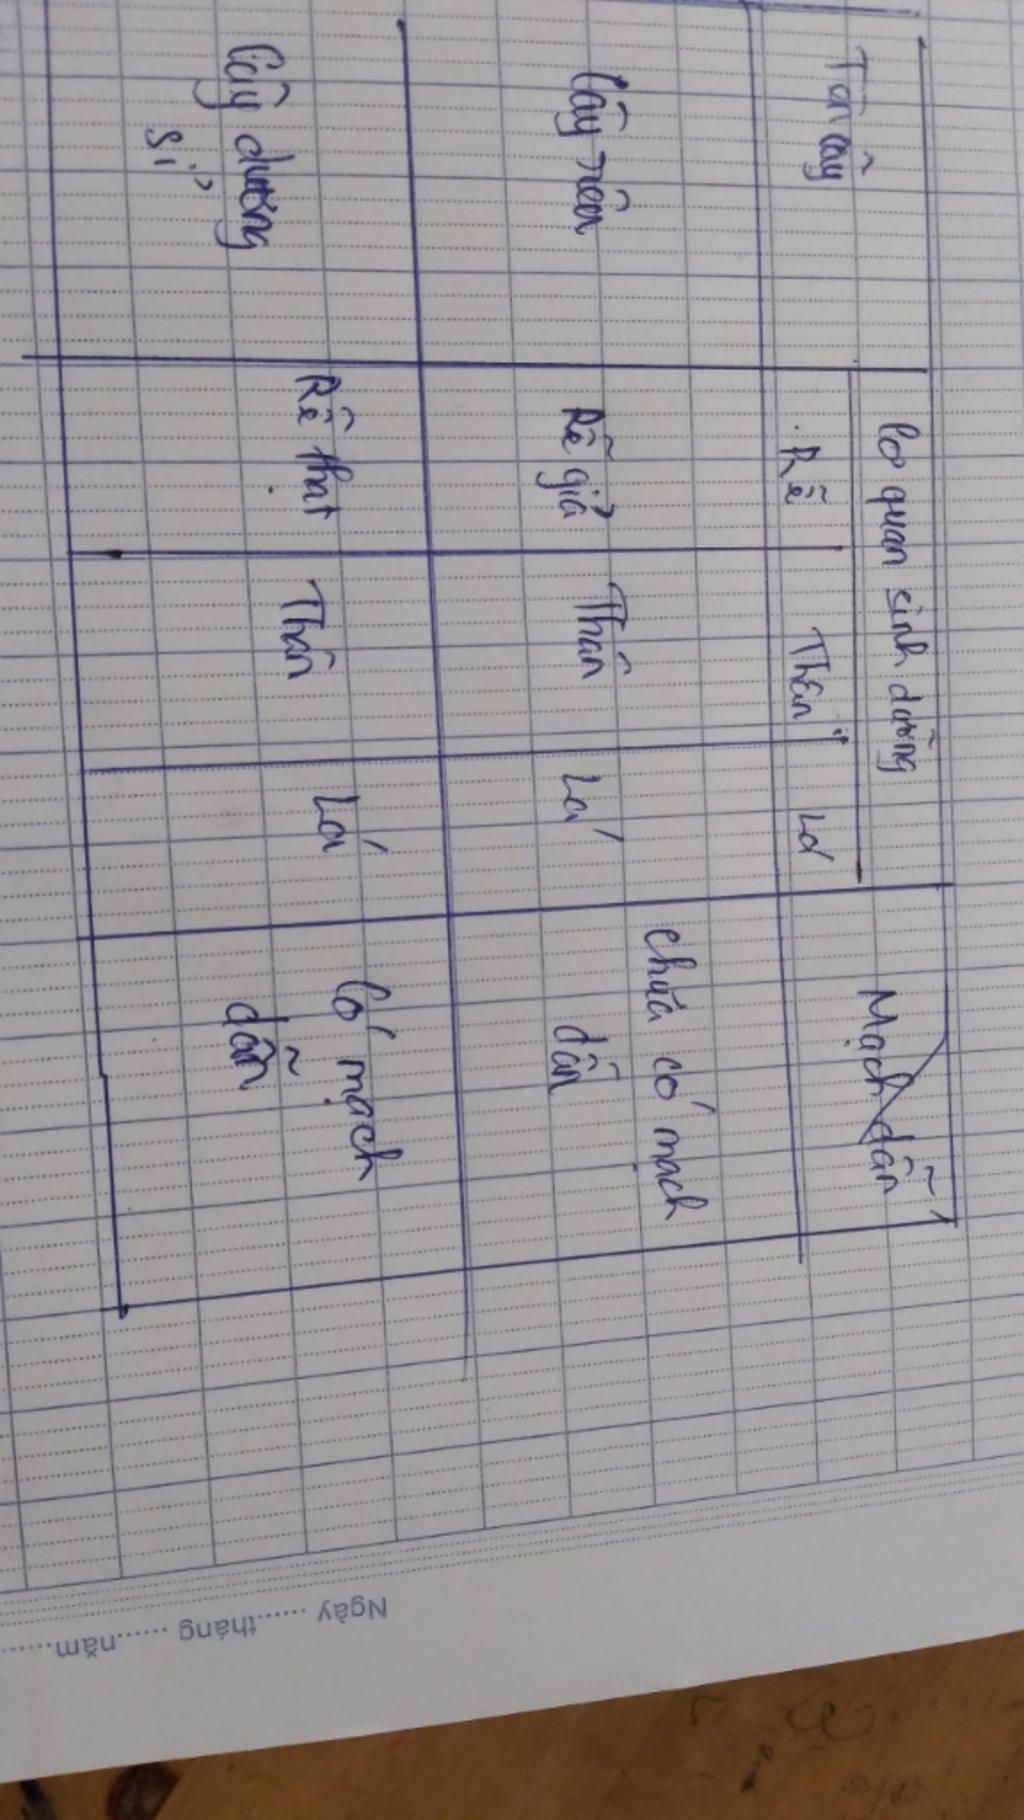 Tên cây
Cơ quan sinh dưỡng
Mạch dẫn
Rễ
Thân
Lá
Cây rêu
Rễ giả
Thân
Lá
Chưa có mạch
dẫn
Cây dương
sỉ
Rễ thật
Thân
Lá
Có mạch
dẫn
Ngày ......tháng ......năm......